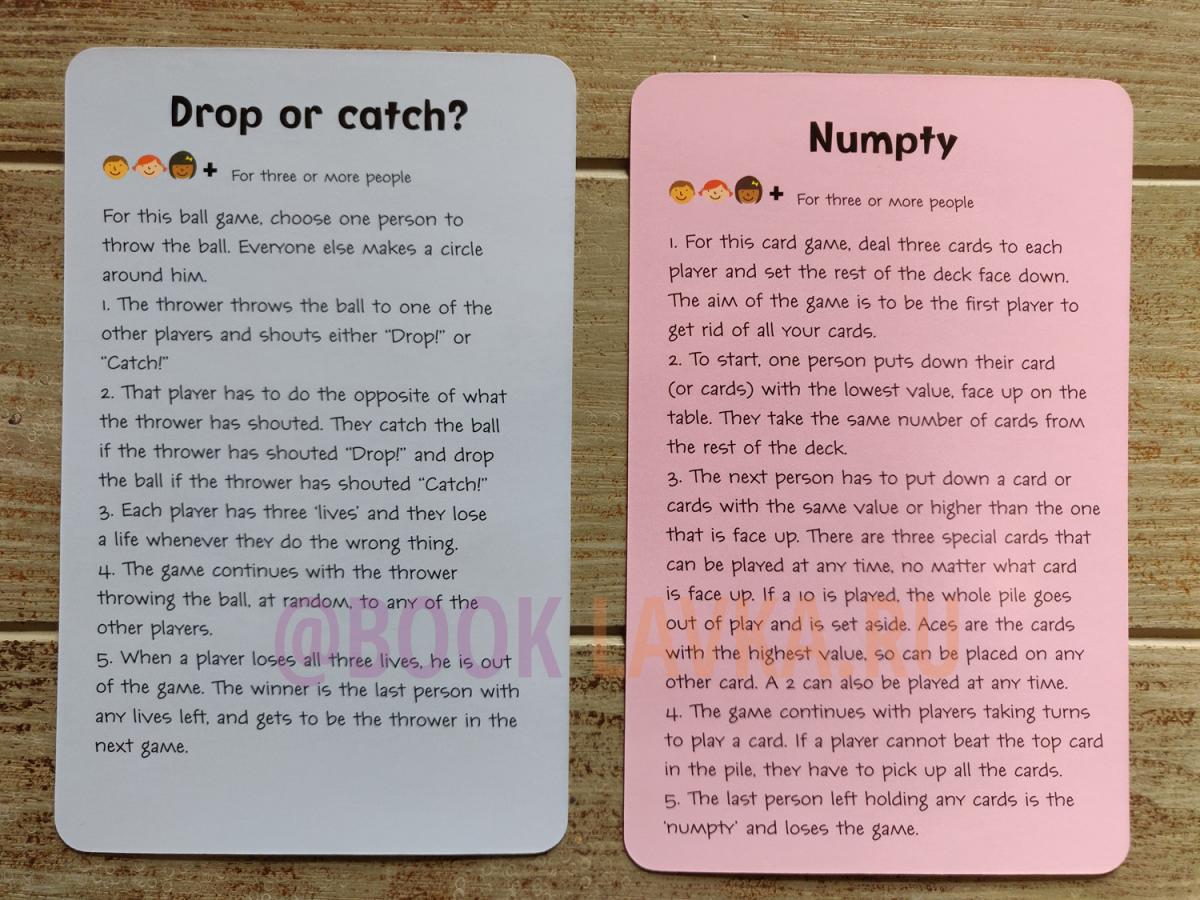 Drop or catch?
+ For three or more people
For this ball game, choose one person to
throw the ball. Everyone else makes a circle
around him.
1. The thrower throws the ball to one of the
other players and shouts either “Drop!” or
“Catch!”
2. That player has to do the opposite of what
the thrower has shouted. They catch the ball
if the thrower has shouted “Drop!” and drop
the ball if the thrower has shouted “Catch!”
3. Each player has three ‘lives’ and they lose
a life whenever they do the wrong thing.
4. The game continues with the thrower
throwing the ball, at random, to any of the
other players.
5. When a player loses all three lives, he is out
of the game. The winner is the last person with
any lives left, and gets to be the thrower in the
next game.
Numpty
+ For three or more people
1. For this card game, deal three cards to each
player and set the rest of the deck face down.
The aim of the game is to be the first player to
get rid of all your cards.
2. To start, one person puts down their card
(or cards) with the lowest value, face up on the
table. They take the same number of cards from
the rest of the deck.
3. The next person has to put down a card or
cards with the same value or higher than the one
that is face up. There are three special cards that
can be played at any time, no matter what card
is face up. If a 10 is played, the whole pile goes
out of play and is set aside. Aces are the cards
with the highest value, so can be placed on any
other card. A 2 can also be played at any time.
4. The game continues with players taking turns
to play a card. If a player cannot beat the top card
in the pile, they have to pick up all the cards.
5. The last person left holding any cards is the
‘numpty’ and loses the game.
@BOOK LAVKA.RU